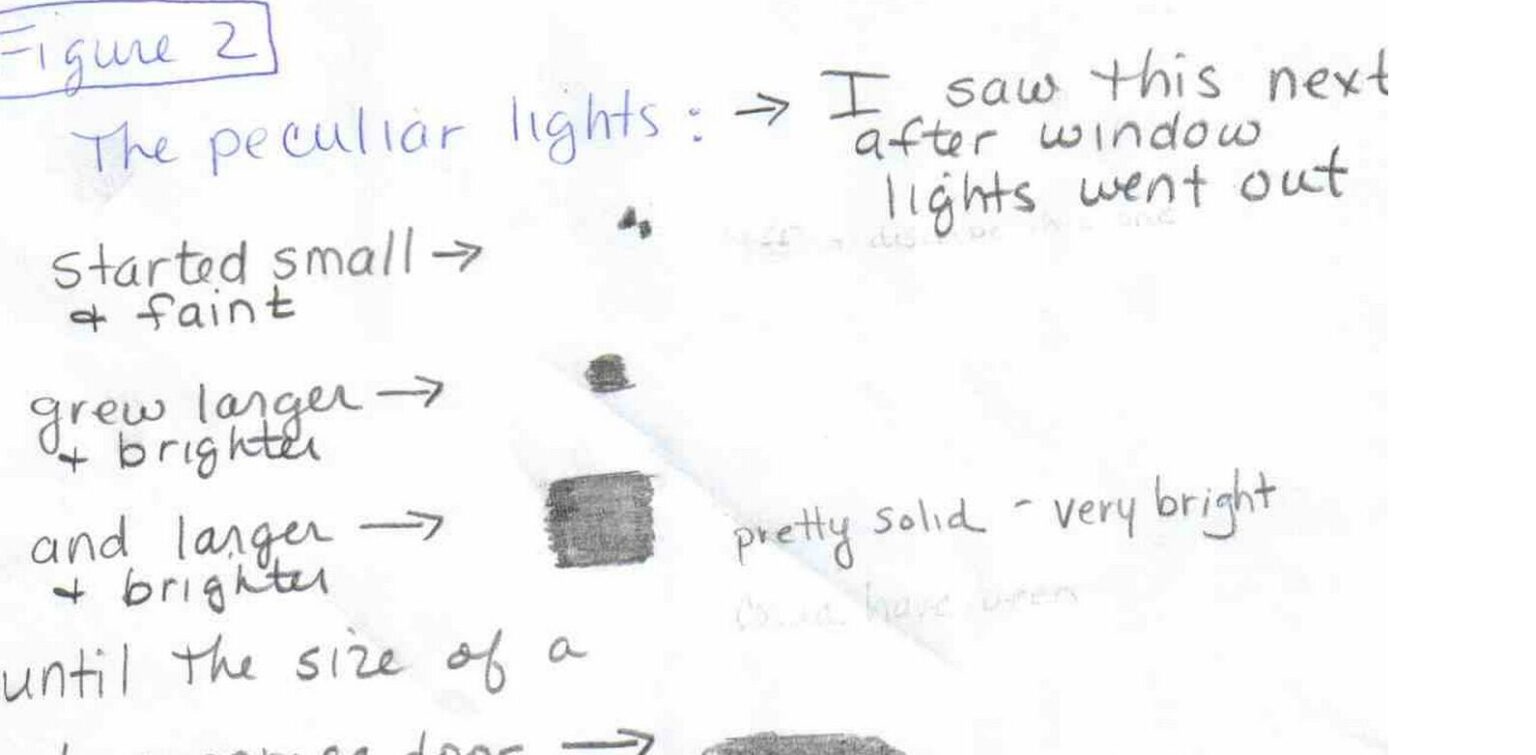 Figure 2
The peculiar lights: → I saw this next
after window
lights went out
started small →
& faint
grew larger →
+ brighter
and larger →
+ brighter
pretty solid - very bright
have been
until the size of a
door →